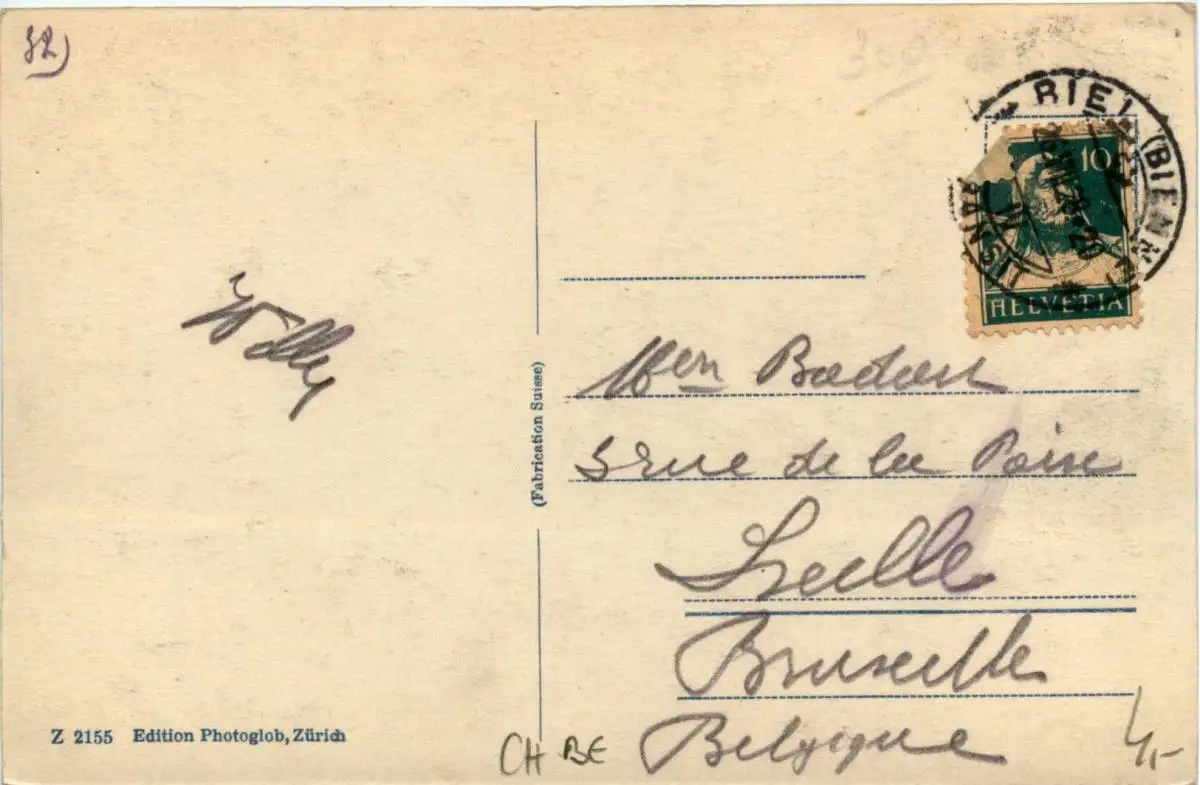 32)
300
BIEL (BIENNE)
10
HELVETIA
Willy
(Fabrication Suisse)
5 rue de la
Ixelle
Bruxelle
Belgique
Z 2155 Edition Photoglob, Zürich
CH BE
4,-